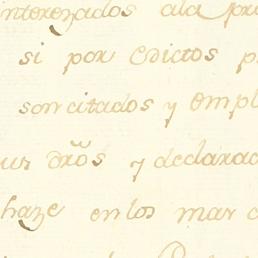 interezados ala
si por edictos
son citados y empl
us dr̃os y declarad
haze en los mar